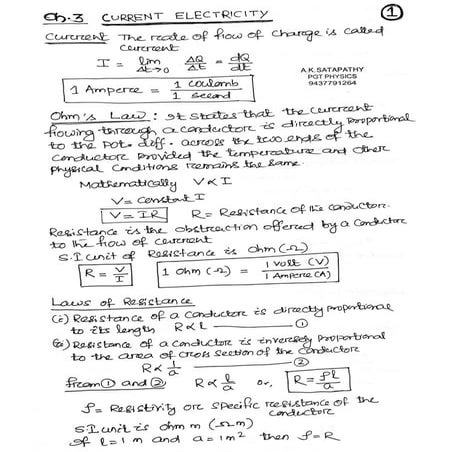 Ch.3 CURRENT ELECTRICITY
1
Current The rate of flow of charge is called
current
I = lim Δt→0 ΔQ/Δt = dQ/dt
A.K.SATAPATHY
PGT PHYSICS
9437791264
1 Ampere = 1 coulomb / 1 second
Ohm's Law : It states that the current
flowing through a conductor is directly proportional
to the Pot. diff. across the two ends of the
conductor provided the temperature and other
physical conditions remains the same.
Mathematically V ∝ I
V = constant I
V = IR R = Resistance of the conductor.
Resistance is the obstruction offered by a conductor
to the flow of current
S.I unit of Resistance is ohm (Ω)
R = V/I 1 ohm (Ω) = 1 volt (V) / 1 Ampere (A)
Laws of Resistance
(i) Resistance of a conductor is directly proportional
to its length R ∝ l — ①
(ii) Resistance of a conductor is inversely proportional
to the area of cross section of the conductor
R ∝ 1/a — ②
from ① and ② R ∝ l/a or, R = ρl/a
ρ = Resistivity or specific resistance of the
conductor
S.I unit is ohm m (Ωm)
If l = 1 m and a = 1 m² then ρ = R